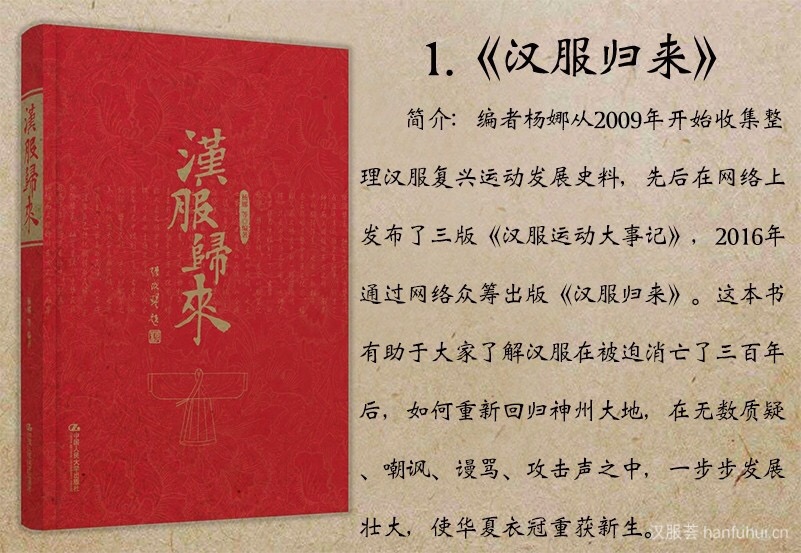 漢服歸來
杨娜 等◎编著
漢服歸來
杨娜 等◎编著
中国人民大学出版社
1.《汉服归来》
简介：编者杨娜从2009年开始收集整
理汉服复兴运动发展史料，先后在网络上
发布了三版《汉服运动大事记》，2016年
通过网络众筹出版《汉服归来》。这本书
有助于大家了解汉服在被迫消亡了三百年
后，如何重新回归神州大地，在无数质疑
、嘲讽、谩骂、攻击声之中，一步步发展
壮大，使华夏衣冠重获新生。
汉服荟 hanfuhui.cn